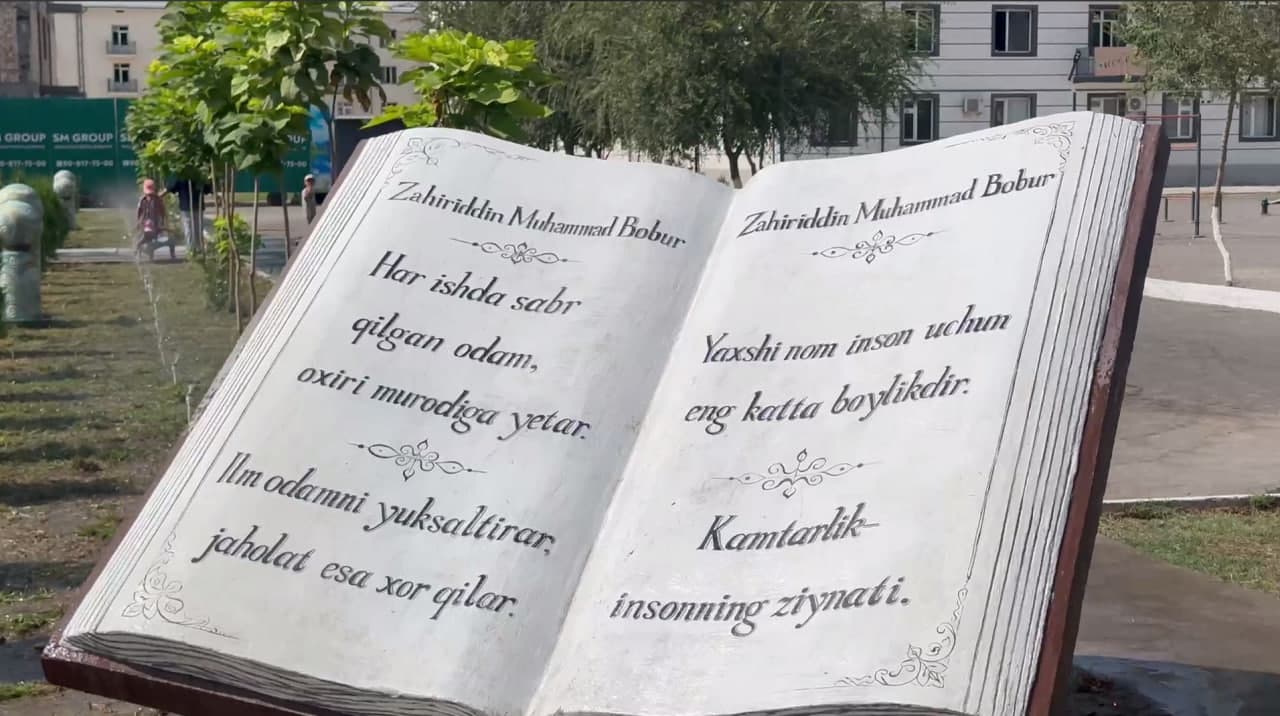 SM GROUP
Zahiriddin Muhammad Bobur
Har ishda sabr
qilgan odam,
oxiri murodiga yetar.
Ilm odamni yuksaltirar,
jaholat esa xor qilar.
Zahiriddin Muhammad Bobur
Yaxshi nom inson uchun
eng katta boylikdir.
Kamtarlik-
insonning ziynati.